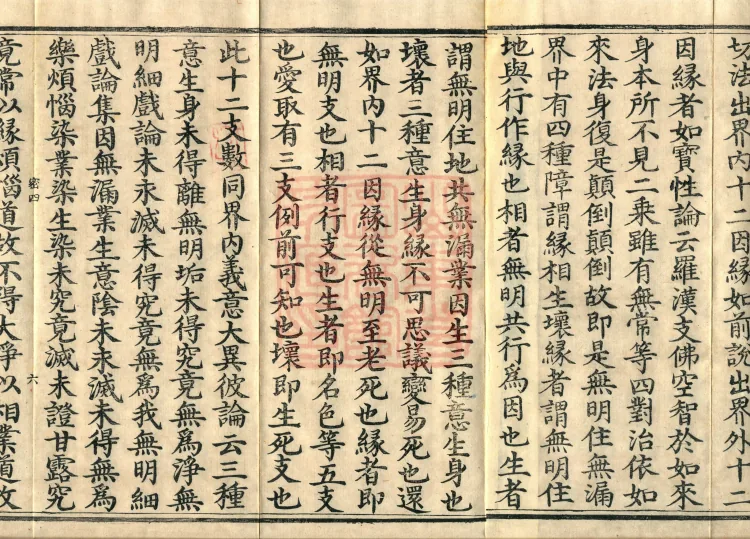 切法出界內十二因緣如前說出界外十二
因緣者如寶性論云羅漢支佛空智於如來
身本所不見二乘雖有無常等四對治依如
來法身復是顛倒顛倒故即是無明住無漏
界中有四種障謂緣相生壞緣者謂無明住
地與行作緣也相者無明共行為因也生者
謂無明住地共無漏業因生三種意生身也
壞者三種意生身緣不可思議變易死也還
如界內十二因緣從無明至老死也緣者即
無明支也相者行支也生者即名色等五支
也愛取有三支例前可知也壞即生死支也
此十二支數同界內義意大異彼論云三種
意生身未得離無明垢未得究竟無為淨無
明細戲論未永滅未得究竟無為我無明細
戲論集因無漏業生意陰未永滅未得無為
樂煩惱染業染生染未究竟滅未證甘露究
密四 六
竟常以緣煩惱道故不得大淨以相業道故